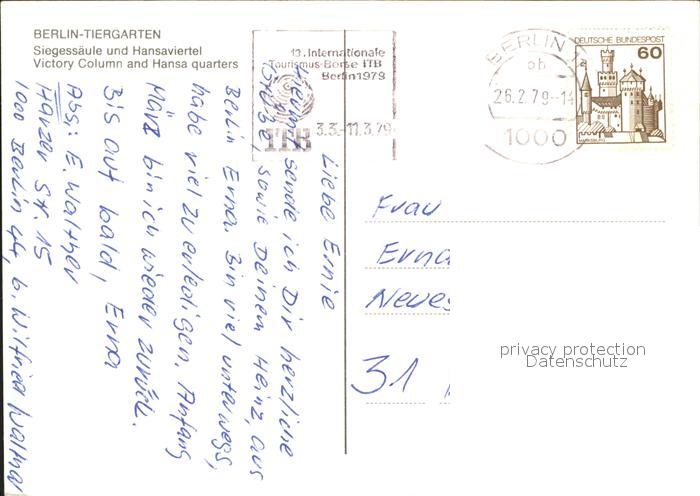 BERLIN-TIERGARTEN
Siegessäule und Hansaviertel
Victory Column and Hansa quarters
13. Internationale
Tourismus-Börse ITB
Berlin 1979
ITB
3.3.-11.3.79
BERLIN
ob
26.2.79-14
1000
DEUTSCHE BUNDESPOST
60
MARKSBURG
Liebe Ernie
Hiermit sende ich Dir herzliche
Grüße, sowie Deinem Heinz, aus
Berlin Erna. Bin viel unterwegs,
habe viel zu erledigen. Anfang
März bin ich wieder zurück.
Bis auf bald, Erna
Abs: E. Walther
Harzer Str. 15
1000 Berlin 44, b. Wilfried Walther
Frau
Erna
Neues
31
privacy protection
Datenschutz